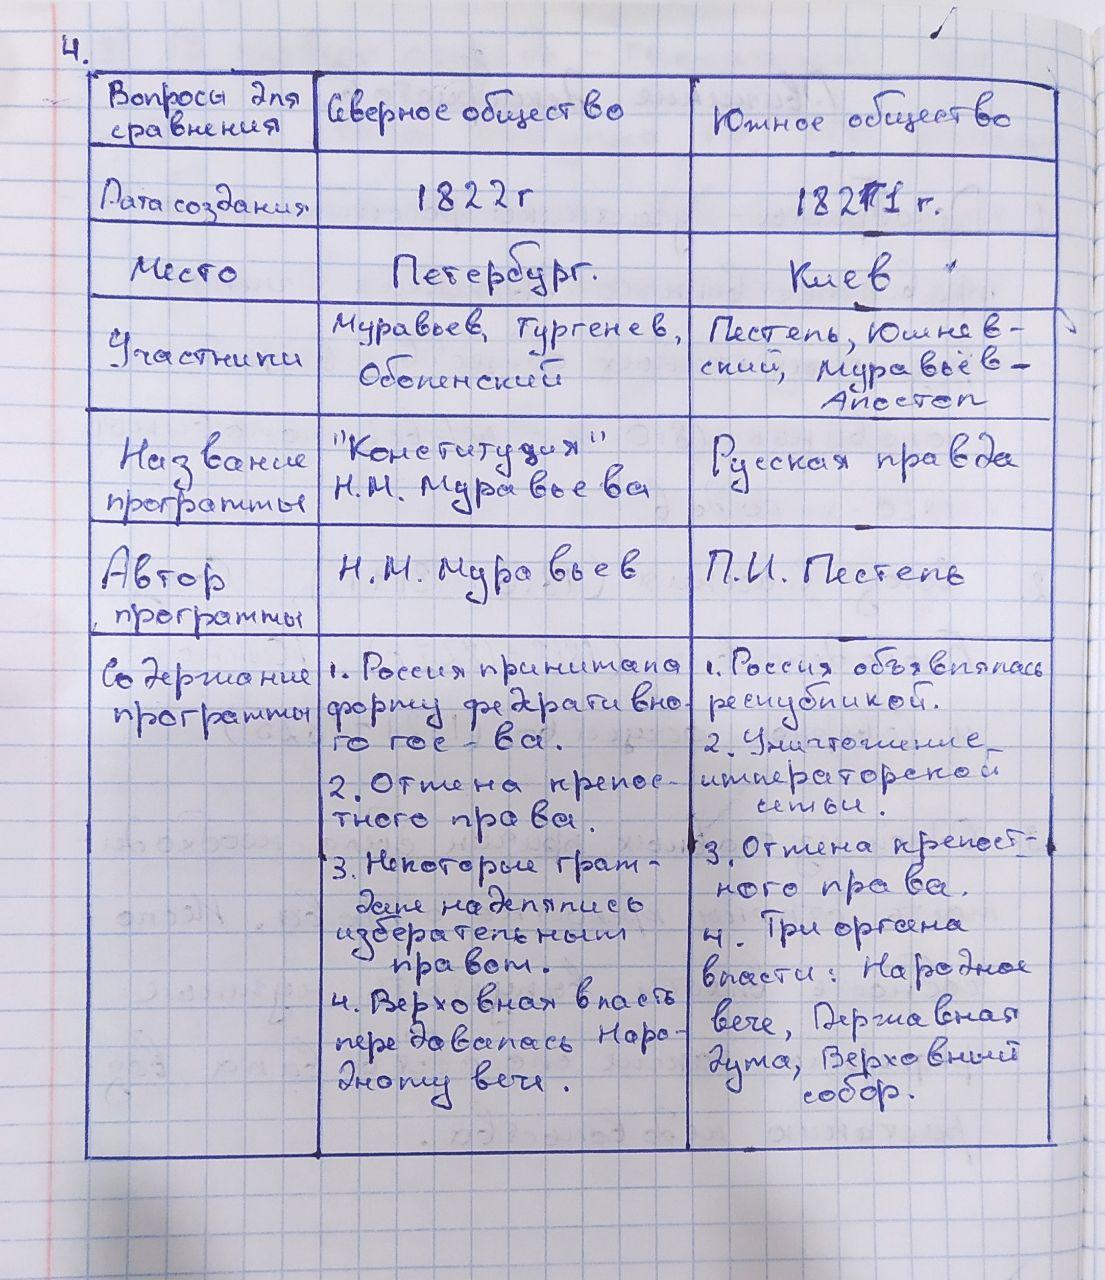 4.
Вопросы для
сравнения
Северное общество
Южное общество
Дата создания
1822г
1821 г.
Место
Петербург.
Киев
Участники
Муравьев, Тургенев,
Оболенский
Пестель, Юшнев-
ский, Муравьёв-
Апостол
Название
программы
"Конституция"
Н.М. Муравьева
Русская правда
Автор
программы
Н.М. Муравьев
П.И. Пестель
Содержание
программы
1. Россия принимала
форму федративно-
го гос-ва.
2. Отмена крепос-
тного права.
3. Некоторые граж-
дане наделялись
изберательным
правом.
4. Верховная власть
передавалась Наро-
дному вече.
1. Россия объявлялась
республикой.
2. Уничтожение
императорской
семьи.
3. Отмена крепост-
ного права.
4. Три органа
власти: Народное
вече, Державная
дума, Верховный
собор.